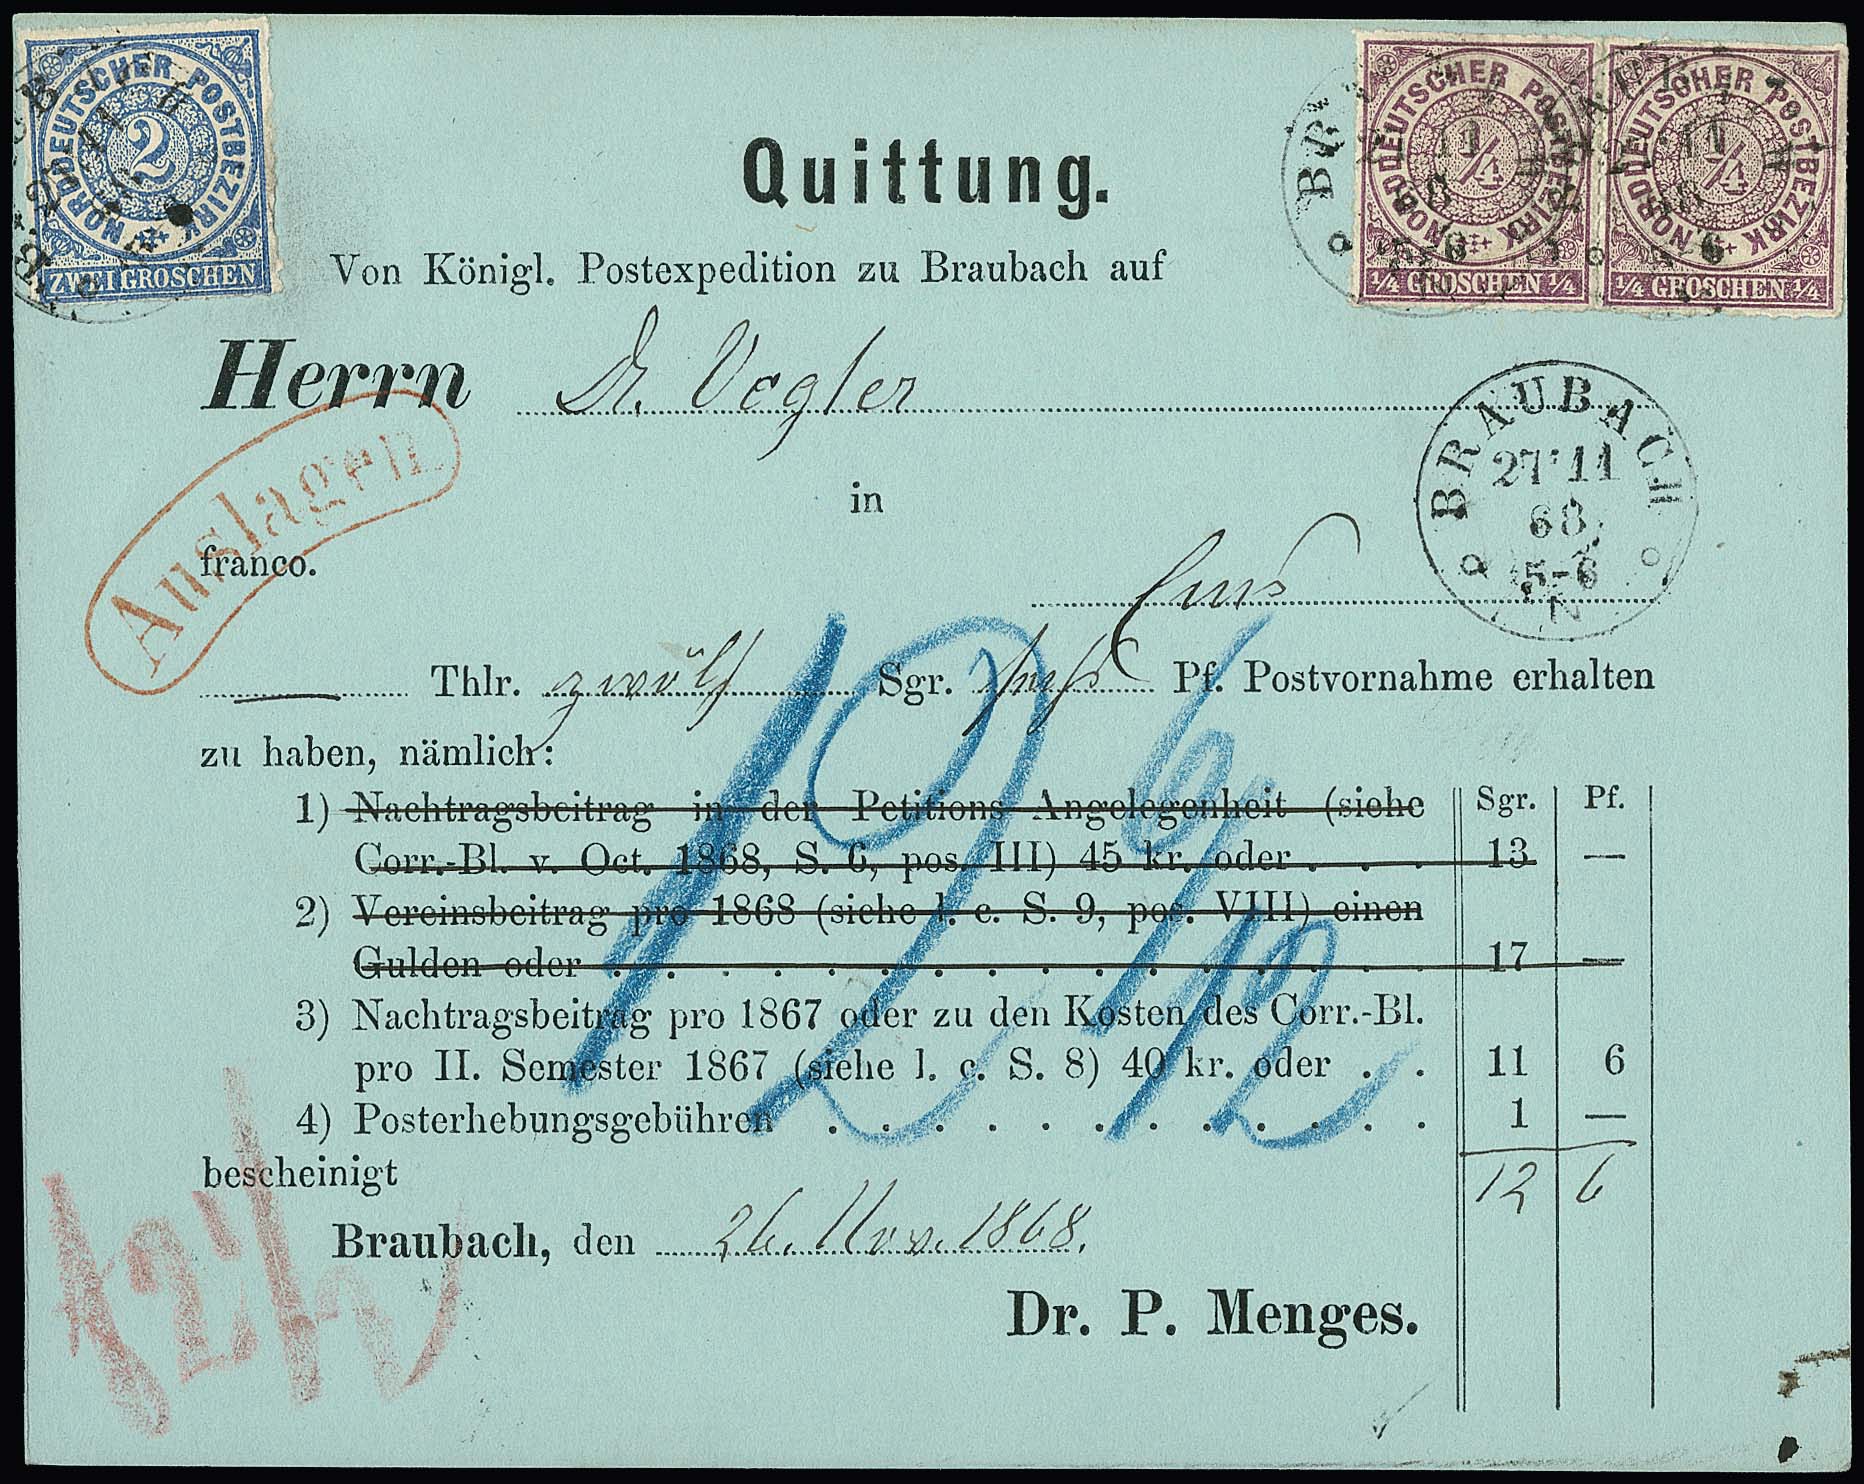 NORDDEUTSCHER POSTBEZIRK
2
ZWEI GROSCHEN
NORDDEUTSCHER POSTBEZIRK
1/4
1/4 GROSCHEN 1/4
NORDDEUTSCHER POSTBEZIRK
1/4
1/4 GROSCHEN 1/4
Quittung.
Von Königl. Postexpedition zu Braubach auf
Herrn Dr. Vogler
BRAUBACH
27 11
68.
5-6
N
Auslagen
in
franco.
Ems
Thlr. zwölf Sgr. sechs Pf. Postvornahme erhalten
zu haben, nämlich:
Sgr. Pf.
1) Nachtragsbeitrag in der Petitions Angelegenheit (siehe
Corr.-Bl. v. Oct. 1868, S. 6, pos. III) 45 kr. oder . . . 13 —
2) Vereinsbeitrag pro 1868 (siehe l. c. S. 9, pos. VIII) einen
Gulden oder . . . . . . . . . . . . . . . . 17 —
3) Nachtragsbeitrag pro 1867 oder zu den Kosten des Corr.-Bl.
pro II. Semester 1867 (siehe l. c. S. 8) 40 kr. oder . . 11 6
4) Posterhebungsgebühren . . . . . . . . . . . . 1 —
12 6
bescheinigt
Braubach, den 26. Nov. 1868.
Dr. P. Menges.
12 6/12